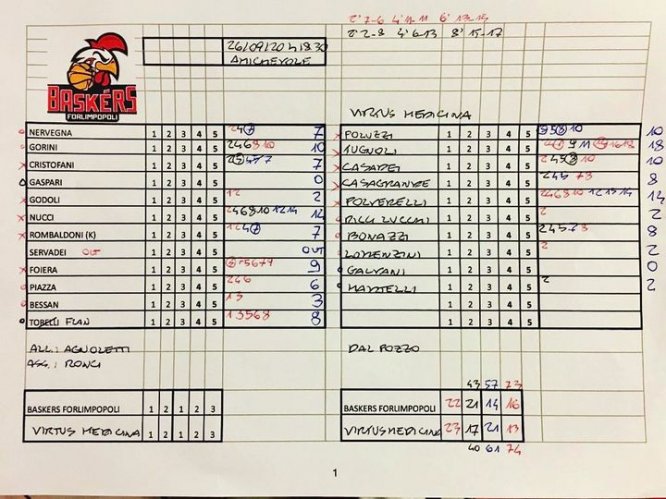 2' 7-6 4' 11-11 6' 13-15
2' 2-8 4' 6-13 8' 15-17
26/09/20 h 18.30
AMICHEVOLE
BASKERS
FORLIMPOPOLI
VIRTUS MEDICINA
NERVEGNA 1 2 3 4 5 7
GORINI 1 2 3 4 5 246810 10
CRISTOFANI 1 2 3 4 5 7
GASPARI 1 2 3 4 5 0
GODOLI 1 2 3 4 5 12 2
NUCCI 1 2 3 4 5 246810 1214 14
ROMBALDONI (K) 1 2 3 4 5 7
SERVADEI OUT 1 2 3 4 5 OUT
FOIERA 1 2 3 4 5 9
PIAZZA 1 2 3 4 5 246 6
BESSAN 1 2 3 4 5 13 3
TOBELLI FLAN 1 2 3 4 5 13568 8
POLUZZI 1 2 3 4 5 10
1 2 3 4 5 18
CASADEI 1 2 3 4 5 245810 10
CASAGRANDE 1 2 3 4 5 24578 8
POLVERELLI 1 2 3 4 5 246810 121314 14
RICCI LUCCHI 1 2 3 4 5 2 2
BONAZZI 1 2 3 4 5 24578 8
LORENZINI 1 2 3 4 5 2 2
GALVANI 1 2 3 4 5 0
MARTELLI 1 2 3 4 5 2 2
1 2 3 4 5
1 2 3 4 5
ALL.: AGNOLETTI
ASS.: RONCI
DAL POZZO
43 57 73
BASKERS FORLIMPOPOLI 1 2 1 2 3
VIRTUS MEDICINA 1 2 1 2 3
BASKERS FORLIMPOPOLI 22 21 14 16
VIRTUS MEDICINA 23 17 21 13
40 61 74
1